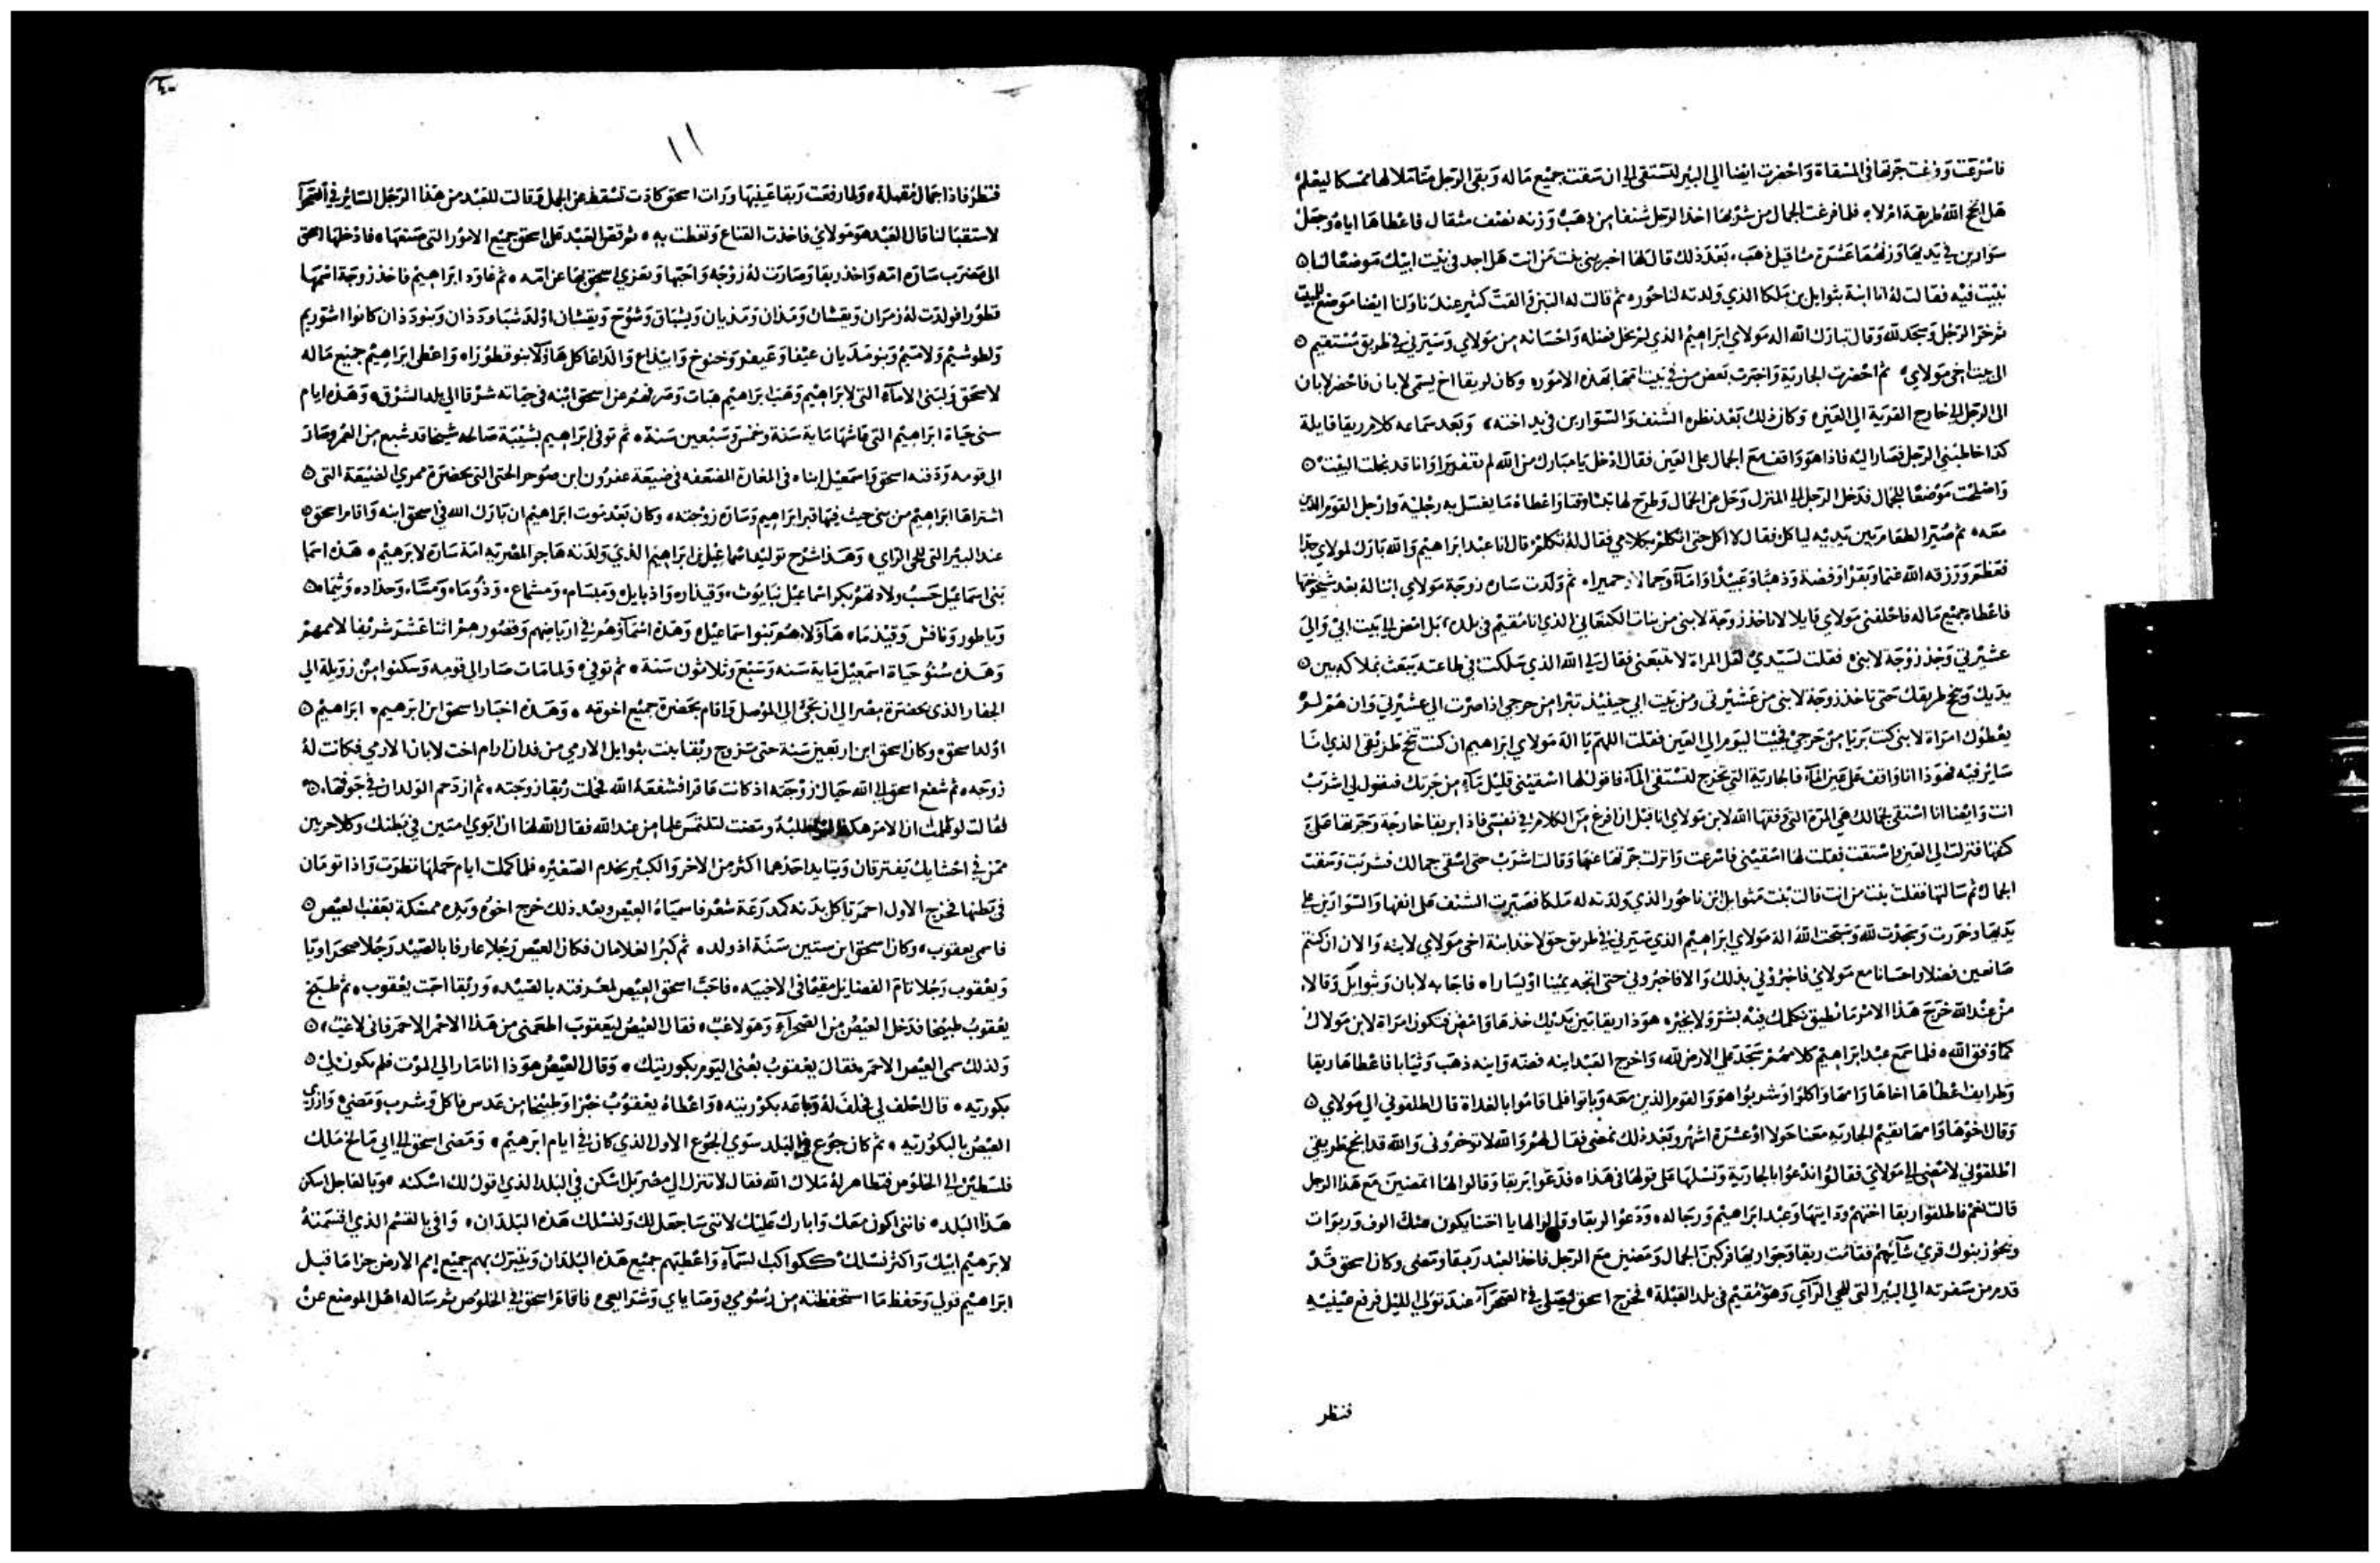 فاسرعت وفرغت جرتها في المسقاة واحضرت ايضا الي البئر لتستقي الي ان سقت جميع ماله وبقي الرجل متاملا لها ممسكا ليعلم
هل انجح الله طريقه ام لا فلما فرغت الجمال من شربها اخذ الرجل شنفا من ذهب وزنه نصف مثقال فاعطاها اياه وجعل
سوارين في يديها وزنهما عشرة مثاقيل ذهب بعد ذلك قال لها اخبريني بنت من انت هل اجد في بيت ابيك موضعا لنا
نبيت فيه فقالت له انا ابنة بثوايل بن ملكا الذي ولدته لناحور ثم قالت له التبن والقت كثير عندنا ولنا ايضا موضع للمبيت
ثم خر الرجل وسجد لله وقال تبارك الله اله مولاي ابراهيم الذي لم يخل فضله واحسانه من مولاي وسيرني في طريق مستقيم
الي بيت اخي مولاي ثم احضرت الجارية واخبرت بعض من في بيت امها بهذه الامور وكان لربقا اخ يسمي لابان فاحضر لابان
الي الرجل الي خارج القرية الي العين وكان ذلك بعد نظره الشنف والسوارين في يد اخته وبعد سماعه كلام ربقا قايلة
كذا خاطبني الرجل فصار اليه فاذا هو واقف مع الجمال علي العين فقال ادخل يا مبارك من الله لم تقف برا وانا قد نخلت البيت
واصلحت موضعا للجمال فدخل الرجل الي المنزل وحل عن الجمال وطرح لها تبنا وقتا واعطاه ما يغسل به رجليه وارجل القوم الذين
معه ثم صير الطعام بين يديه لياكل فقال لا اكل حتي اتكلم بكلامي فقال له تكلم قال انا عبد ابراهيم والله بارك لمولاي جدا
فعظم ورزقه الله غنما وبقرا وفضة وذهبا وعبيدا واماء وجمالا وحميرا ثم ولدت ساره زوجة مولاي ابنا له بعد شيخوختها
فاعطاه جميع ماله فاحلفني مولاي قايلا لا تاخذ زوجة لابني من بنات الكنعاني الذي انا مقيم في بلده بل امض الي بيت ابي والي
عشيرتي وخذ زوجة لابني فقلت لسيدي لعل المراة لا تتبعني فقال لي الله الذي سلكت في طاعته يبعث بملاكه بين
يديك وينجح طريقك حتي تاخذ زوجة لابني من عشيرتي ومن بيت ابي حينيذ تبرا من حرجي اذا صرت الي عشيرتي وان هم لم
يعطوك امراة لابني كنت بريا من حرجي فجيت اليوم الي العين فقلت اللهم يا اله مولاي ابراهيم ان كنت تنجح طريقي الذي انا
ساير فيه فهوذا انا واقف علي عين الماء فالجارية التي تخرج لتستقي الماء فاقول لها اسقيني قليل ماء من جرتك فتقول لي اشرب
انت وايضا انا استقي لجمالك هي المرة التي وفقها الله لابن مولاي انا قبل ان افرغ من الكلام في نفسي فاذا بربقا خارجة وجرتها علي
كتفها فنزلت الي العين واستقت فقلت لها اسقيني فاسرعت وانزلت جرتها عنها وقالت اشرب حتي اسقي جمالك فشربت وسقت
الجمال ثم سالتها فقلت بنت من انت قالت بنت بثوايل ابن ناحور الذي ولدته له ملكا فصيرت الشنف علي انفها والسوارين علي
يديها وخررت وسجدت لله وسبحت الله اله مولاي ابراهيم الذي سيرني في طريق حق لاخذ ابنة اخي مولاي لابنه والان ان كنتم
صانعين فضلا واحسانا مع مولاي فاخبروني بذلك والا فاخبروني حتي اتجه يمينا او يسارا فاجابه لابان وبثوايل وقالا
من عند الله خرج هذا الامر ما نطيق نكلمك فيه بشر ولا بخير هوذا ربقا بين يديك خذها وامض فتكون امراة لابن مولاك
كما وفق الله فلما سمع عبد ابراهيم كلامهم سجد علي الارض لله واخرج العبد انية فضه وانية ذهب وثيابا فاعطاها ربقا
وطرايف اعطاها اخاها وامها واكلوا وشربوا هو والقوم الذين معه وباتوا فلما قاموا بالغداة قال اطلقوني الي مولاي
وقال اخوها وامها تقيم الجارية معنا حولا او عشرة اشهر وبعد ذلك تمضي فقال لهم والله لا توخروني والله قد انجح طريقي
اطلقوني لامضي الي مولاي فقالوا ندعوا بالجارية ونسلها علي قولها في هذا فدعوا بربقا وقالوا لها اتمضين مع هذا الرجل
قالت نعم فاطلقوا ربقا اختهم ودايتها وعبد ابراهيم ورجاله ودعوا لربقا وقالوا لها يا اختنا يكون منك الوف وربوات
ويحوز بنوك قري شانيهم فقامت ربقا وجواريها فركبن الجمال ومضين مع الرجل فاخذ العبد ربقا ومضي وكان اسحق قد
قدم من سفرته الي البئر التي للحي الراي وهو مقيم في بلد القبلة فخرج اسحق ليصلي في الصحرا عند تولي الليل فرفع عينيه
فنظر
١١
فنظر فاذا جمال مقبلة ولما رفعت ربقا عينيها ورات اسحق كادت تسقط عن الجمل وقالت للعبد من هذا الرجل الساير في الصحرا
لاستقبالنا قال العبد هو مولاي فاخذت القناع وتغطت به ثم قص العبد علي اسحق جميع الامور التي صنعها فادخلها اسحق
الي مضرب ساره امه واخذ ربقا وصارت له زوجة واحبها وتعزي اسحق بها عن امه ثم عاود ابراهيم فاخذ زوجة اسمها
قطورا فولدت له زمران ويقشان ومدان ومديان ويشباق وشوح ويقشان اولد شبا وددان وبنو ددان كانوا اشوريم
ولطوشيم ولاميم وبنو مديان عيفا وعيفر وحنوخ وابيداع والداعا كل هاولاء بنو قطوره واعطي ابراهيم جميع ماله
لاسحق ولبني الاماء التي لابراهيم وهب ابراهيم هبات وصرفهم عن اسحق ابنه في حياته شرقا الي بلد الشرق وهذه ايام
سني حياة ابراهيم التي عاشها ماية سنة وخمس وسبعين سنة ثم توفي ابراهيم بشيبة صالحه شيخا قد شبع من العمر وصار
الي قومه ودفنه اسحق واسمعيل ابناه في المغارة المضعفه في ضيعة عفرون ابن صوحر الحتي التي بحضرة ممري الضيعة التي
اشتراها ابراهيم من بني حيث فيها قبر ابراهيم وساره زوجته وكان بعد موت ابراهيم ان بارك الله في اسحق ابنه واقام اسحق
عند البير التي للحي الراي وهذا شرح توليد اسماعيل بن ابراهيم الذي ولدته هاجر المصرية امة ساره لابرهيم هذه اسما
بني اسماعيل حسب ولادتهم بكر اسماعيل نبايوث وقيدار واذبايل ومبسام ومشماع ودوما ومسا وحداد وتيما
ويطور ونافش وقيدما هاولاء هم بنو اسماعيل وهذه اسماوهم في ارباضهم وقصورهم اثنا عشر شريفا لاممهم
وهذه سنو حياة اسمعيل ماية سنه وسبع وثلاثون سنة ثم توفي ولما مات صار الي قومه وسكنوا من زويلة الي
الجفار الذي بحضرة مصر الي ان تجي الي الموصل واقام بحضرة جميع اخوته وهذه اخبار اسحق ابن ابرهيم ابراهيم
اولد اسحق وكان اسحق ابن اربعين سنة حتي تزوج ربقا بنت بثوايل الارمي من فدان ارام اخت لابان الارمي فكانت له
زوجه ثم شفع اسحق الي الله حيال زوجته اذ كانت عاقرا فشفعه الله فحملت ربقا زوجته ثم ازدحم الولدان في جوفها
فقالت لو علمت ان الامر هكذا ومضت لتلتمس علما من عند الله فقال الله لها ان ابوي امتين في بطنك وكلا حزبين
ممن في احشايك يفترقان ويتايد احدهما اكثر من الاخر والكبير يخدم الصغير فلما كملت ايام حملها نظرت واذا تومان
في بطنها فخرج الاول احمر تا كل بدنه كدرعة شعر فاسمياه العيص وبعد ذلك خرج اخوه ويده ممسكة بعقب العيص
فاسمي يعقوب وكان اسحق ابن ستين سنة اذ ولد ثم كبر الغلامان فكان العيص رجلا عارفا بالصيد رجلا صحراويا
ويعقوب رجلا تام الفضايل مقيما في الاخبيه فاحب اسحق العيص لمعرفته بالصيد وربقا احبت يعقوب ثم طبخ
يعقوب طبيخا فدخل العيص من الصحراء وهو لاغب فقال العيص ليعقوب اطعمني من هذا الاحمر الاحمر فاني لاغب
ولذلك سمي العيص الاحمر فقال يعقوب بعني اليوم بكوريتك وقال العيص هوذا انا مار الي الموت فلم يكون لي
بكوريه قال احلف لي فحلف له وباعه بكوريته واعطاه يعقوب خبزا وطبيخا من عدس فاكل وشرب ومضي وازري
العيص بالبكوريه ثم كان جوع في البلد سوي الجوع الاول الذي كان في ايام ابرهيم ومضي اسحق الي ابي مالخ ملك
فلسطين الي الخلوص فتظاهر له ملاك الله فقال لا تنزل الي مصر بل اسكن في البلد الذي اقول لك اسكنه وبالعاجل اسكن
هذا البلد فانني اكون معك وابارك عليك لانني ساجعل لك ولنسلك هذه البلدان وافي بالقسم الذي اقسمته
لابرهيم ابيك واكثر نسلك ككواكب السماء واعطيهم جميع هذه البلدان ويتبرك بهم جميع امم الارض جزا ما قبل
ابراهيم قولي وحفظ ما استحفظته من رسومي ووصاياي وشرايعي فاقام اسحق في الخلوص ثم ساله اهل الموضع عن